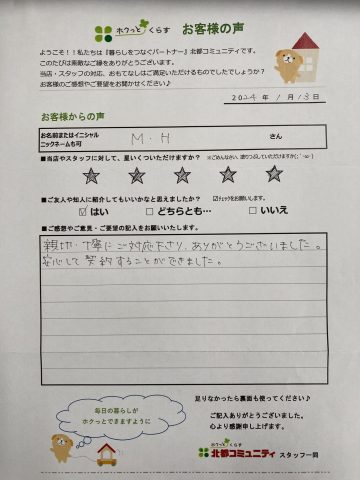 ホクっとくらす お客様の声
ようこそ！！私たちは『暮らしをつなぐパートナー』北都コミュニティです。
このたびは素敵なご縁をありがとうございます。
当店・スタッフの対応、おもてなしはご満足いただけるものでしたでしょうか？
お客様のご感想やご要望をお聞かせください♪
2024年 1月13日
お客様からの声
お名前またはイニシャル
ニックネームも可
M・H さん
■当店やスタッフに対して、星いくついただけますか？ ※ごめんなさい、塗りつぶしていただけますか(；´･ω･)
■ご友人や知人に紹介してもいいかなと思えましたか？ ☑チェックをお願いします。
☑はい □どちらとも… □いいえ
■ご感想やご意見・ご要望の記入をお願いいたします。
親切・丁寧にご対応下さり、ありがとうございました。
安心して契約することができました。
足りなかったら裏面も使ってください♪
毎日の暮らしが
ホクっとできますように
ご記入ありがとうございました。
心より感謝申し上げます。
ホクっとくらす
北都コミュニティ スタッフ一同